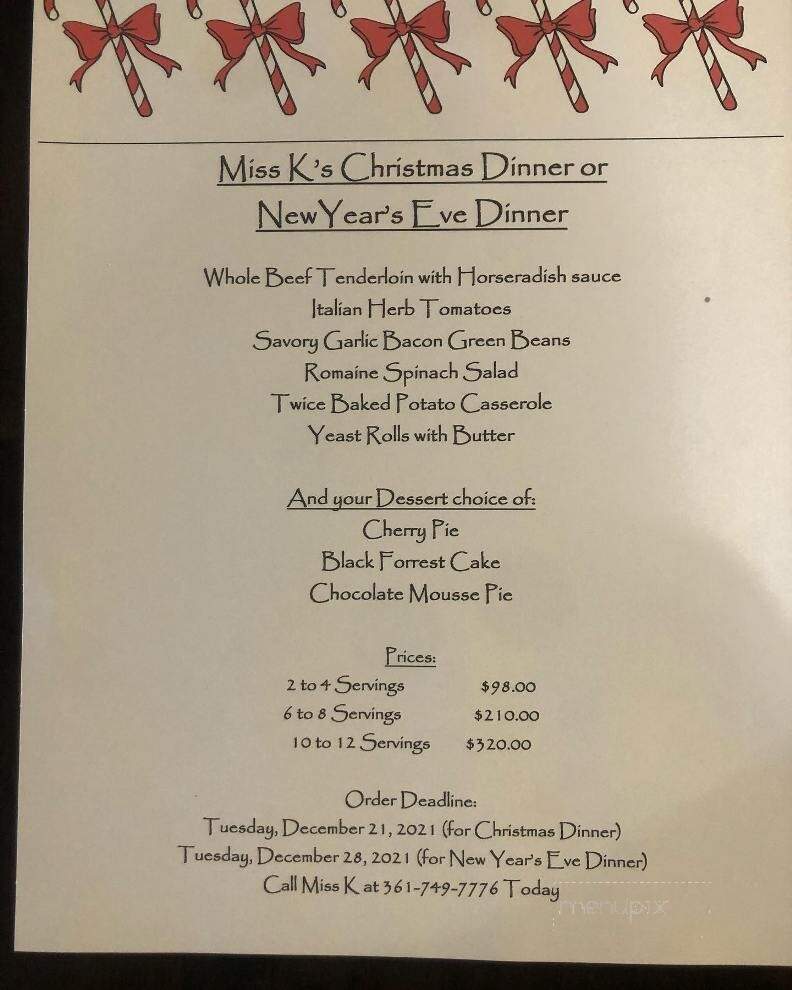 Miss K's Christmas Dinner or
New Year's Eve Dinner
Whole Beef Tenderloin with Horseradish sauce
Italian Herb Tomatoes
Savory Garlic Bacon Green Beans
Romaine Spinach Salad
Twice Baked Potato Casserole
Yeast Rolls with Butter
And your Dessert choice of:
Cherry Pie
Black Forrest Cake
Chocolate Mousse Pie
Prices:
2 to 4 Servings $98.00
6 to 8 Servings $210.00
10 to 12 Servings $320.00
Order Deadline:
Tuesday, December 21, 2021 (for Christmas Dinner)
Tuesday, December 28, 2021 (for New Year's Eve Dinner)
Call Miss K at 361-749-7776 Today
menupix